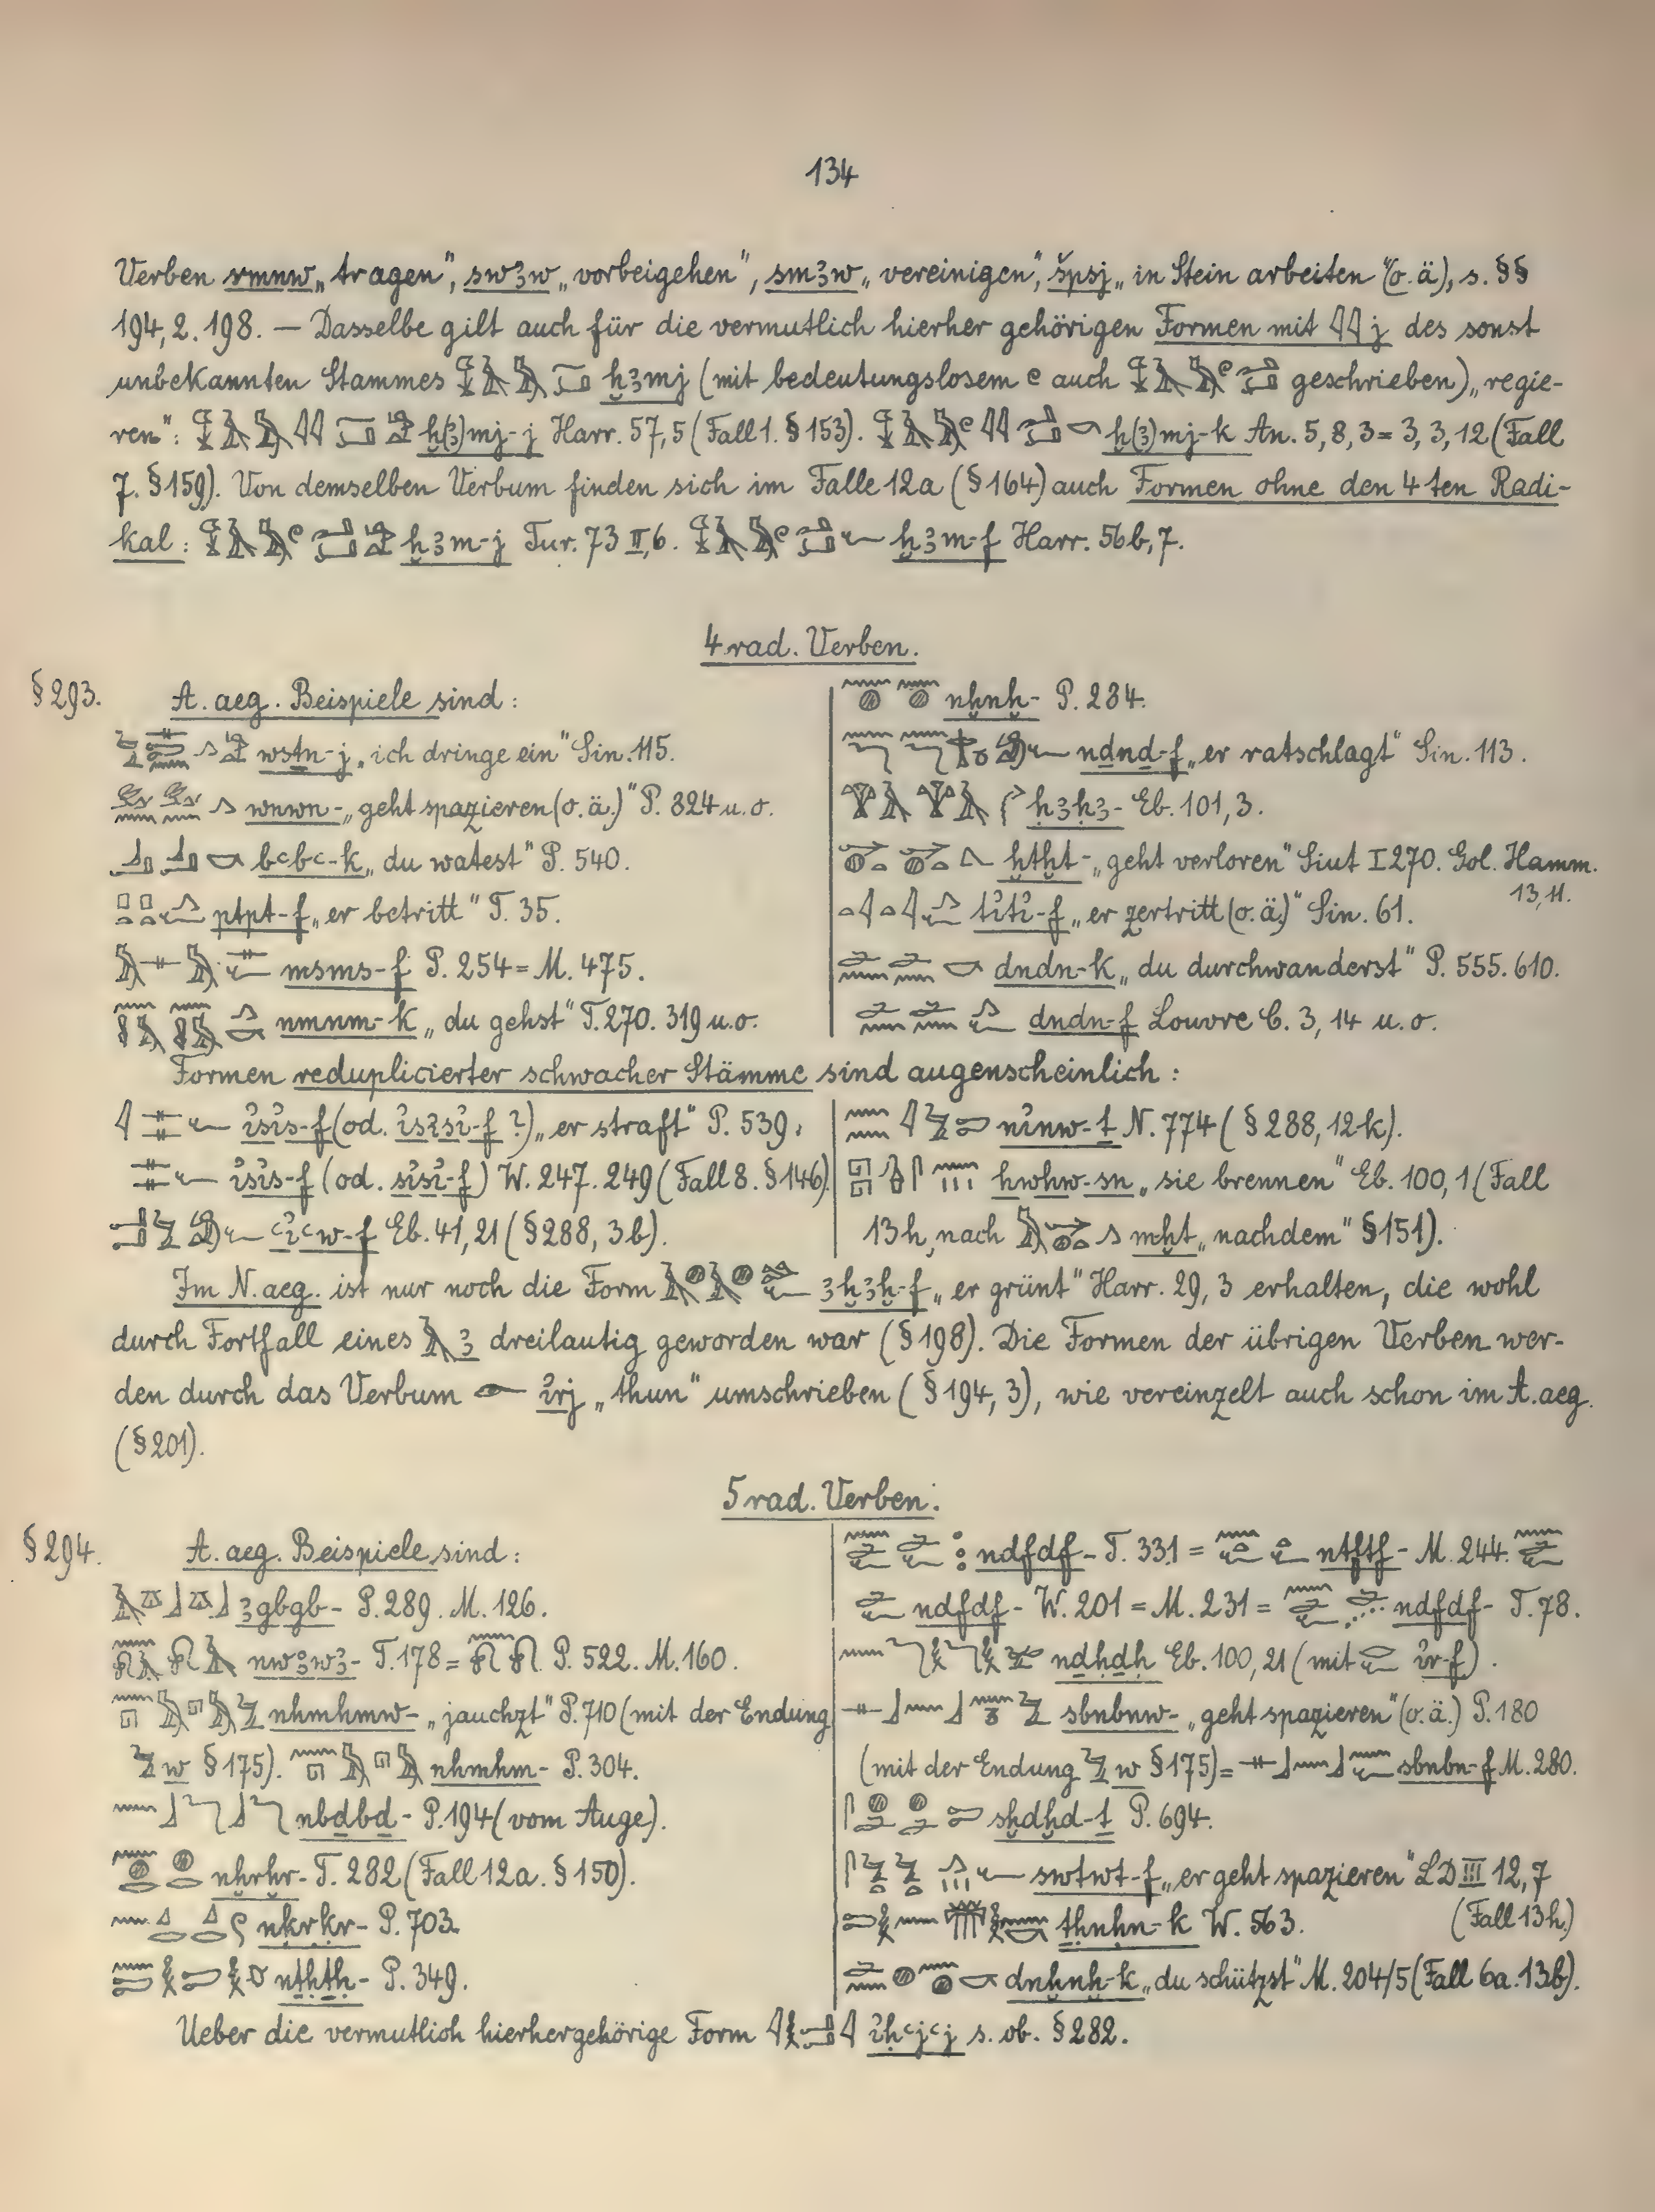 134
Verben rmnw „tragen“, swꜣw „vorbeigehen“, smꜣw „vereinigen“, špsj „in Stein arbeiten“ (o. ä), s. §§
194, 2. 198. — Dasselbe gilt auch für die vermutlich hierher gehörigen Formen mit 𓇋𓇋 j des sonst
unbekannten Stammes ḫꜣmj (mit bedeutungslosem 𓏲 auch geschrieben) „regie-
ren“: ḫ(ꜣ)mj-j Harr. 57, 5 (Fall 1. § 153). ḫ(ꜣ)mj-k An. 5, 8, 3 = 3, 3, 12 (Fall
7. § 159). Von demselben Verbum finden sich im Falle 12a (§ 164) auch Formen ohne den 4ten Radi-
kal: ḫꜣm-j Tur. 73 II, 6. ḫꜣm-f Harr. 56b, 7.
4rad. Verben.
§ 293. A. aeg. Beispiele sind:
wsṯn-j „ich dringe ein“ Sin. 115.
wnwn- „geht spazieren (o. ä.)“ P. 824 u. o.
bꜥbꜥ-k „du watest“ P. 540.
ptpt-f „er betritt“ T. 35.
msms-f P. 254 = M. 475.
nmnm-k „du gehst“ T. 270. 319 u. o.
nḫnḫ- P. 284.
nḏnḏ-f „er ratschlagt“ Sin. 113.
ḥꜣḥꜣ- Eb. 101, 3.
ḫtḫt- „geht verloren“ Siut I 270. Gol. Hamm.
13, 11.
tỉtỉ-f „er zertritt (o. ä.)“ Sin. 61.
dndn-k „du durchwanderst“ P. 555. 610.
dndn-f Louvre C. 3, 14 u. o.
Formen reduplicierter schwacher Stämme sind augenscheinlich:
ỉsỉs-f (od. ỉsỉsỉ-f ?) „er straft“ P. 539.
ỉsỉs-f (od. sỉsỉ-f) W. 247. 249 (Fall 8. § 146).
ꜥỉꜥw-f Eb. 41, 21 (§ 288, 3b).
nỉnw-ṯ N. 774 (§ 288, 12k).
hwhw-sn „sie brennen“ Eb. 100, 1 (Fall
13h, nach mḫt „nachdem“ § 151).
Im N. aeg. ist nur noch die Form ꜣḫꜣḫ-f „er grünt“ Harr. 29, 3 erhalten, die wohl
durch Fortfall eines 𓄿 ꜣ dreilautig geworden war (§ 198). Die Formen der übrigen Verben wer-
den durch das Verbum 𓁹 ỉrj „thun“ umschrieben (§ 194, 3), wie vereinzelt auch schon im A. aeg.
(§ 201).
5rad. Verben.
§ 294. A. aeg. Beispiele sind:
ꜣgbgb- P. 289. M. 126.
nwꜣwꜣ- T. 178 = P. 522. M. 160.
nhmhmw- „jauchzt“ P. 710 (mit der Endung
w § 175). nhmhm- P. 304.
nbḏbḏ- P. 194 (vom Auge).
nḫrḫr- T. 282 (Fall 12a. § 150).
nḳrḳr- P. 703.
nṯḥṯḥ- P. 349.
ndfdf- T. 331 = ntftf- M. 244.
ndfdf- W. 201 = M. 231 = ndfdf- T. 78.
nḏḥḏḥ Eb. 100, 21 (mit ỉr-f).
sbnbnw- „geht spazieren“ (o. ä.) P. 180
(mit der Endung w § 175) = sbnbn-f M. 280.
sḫdḫd-ṯ P. 694.
swtwt-f „er geht spazieren“ LD III 12, 7
(Fall 13h.)
ṯḥnḥn-k W. 563.
dnḫnḫ-k „du schützst“ M. 204/5 (Fall 6a. 13b).
Ueber die vermutlich hierhergehörige Form ỉḥꜥjꜥj s. ob. § 282.